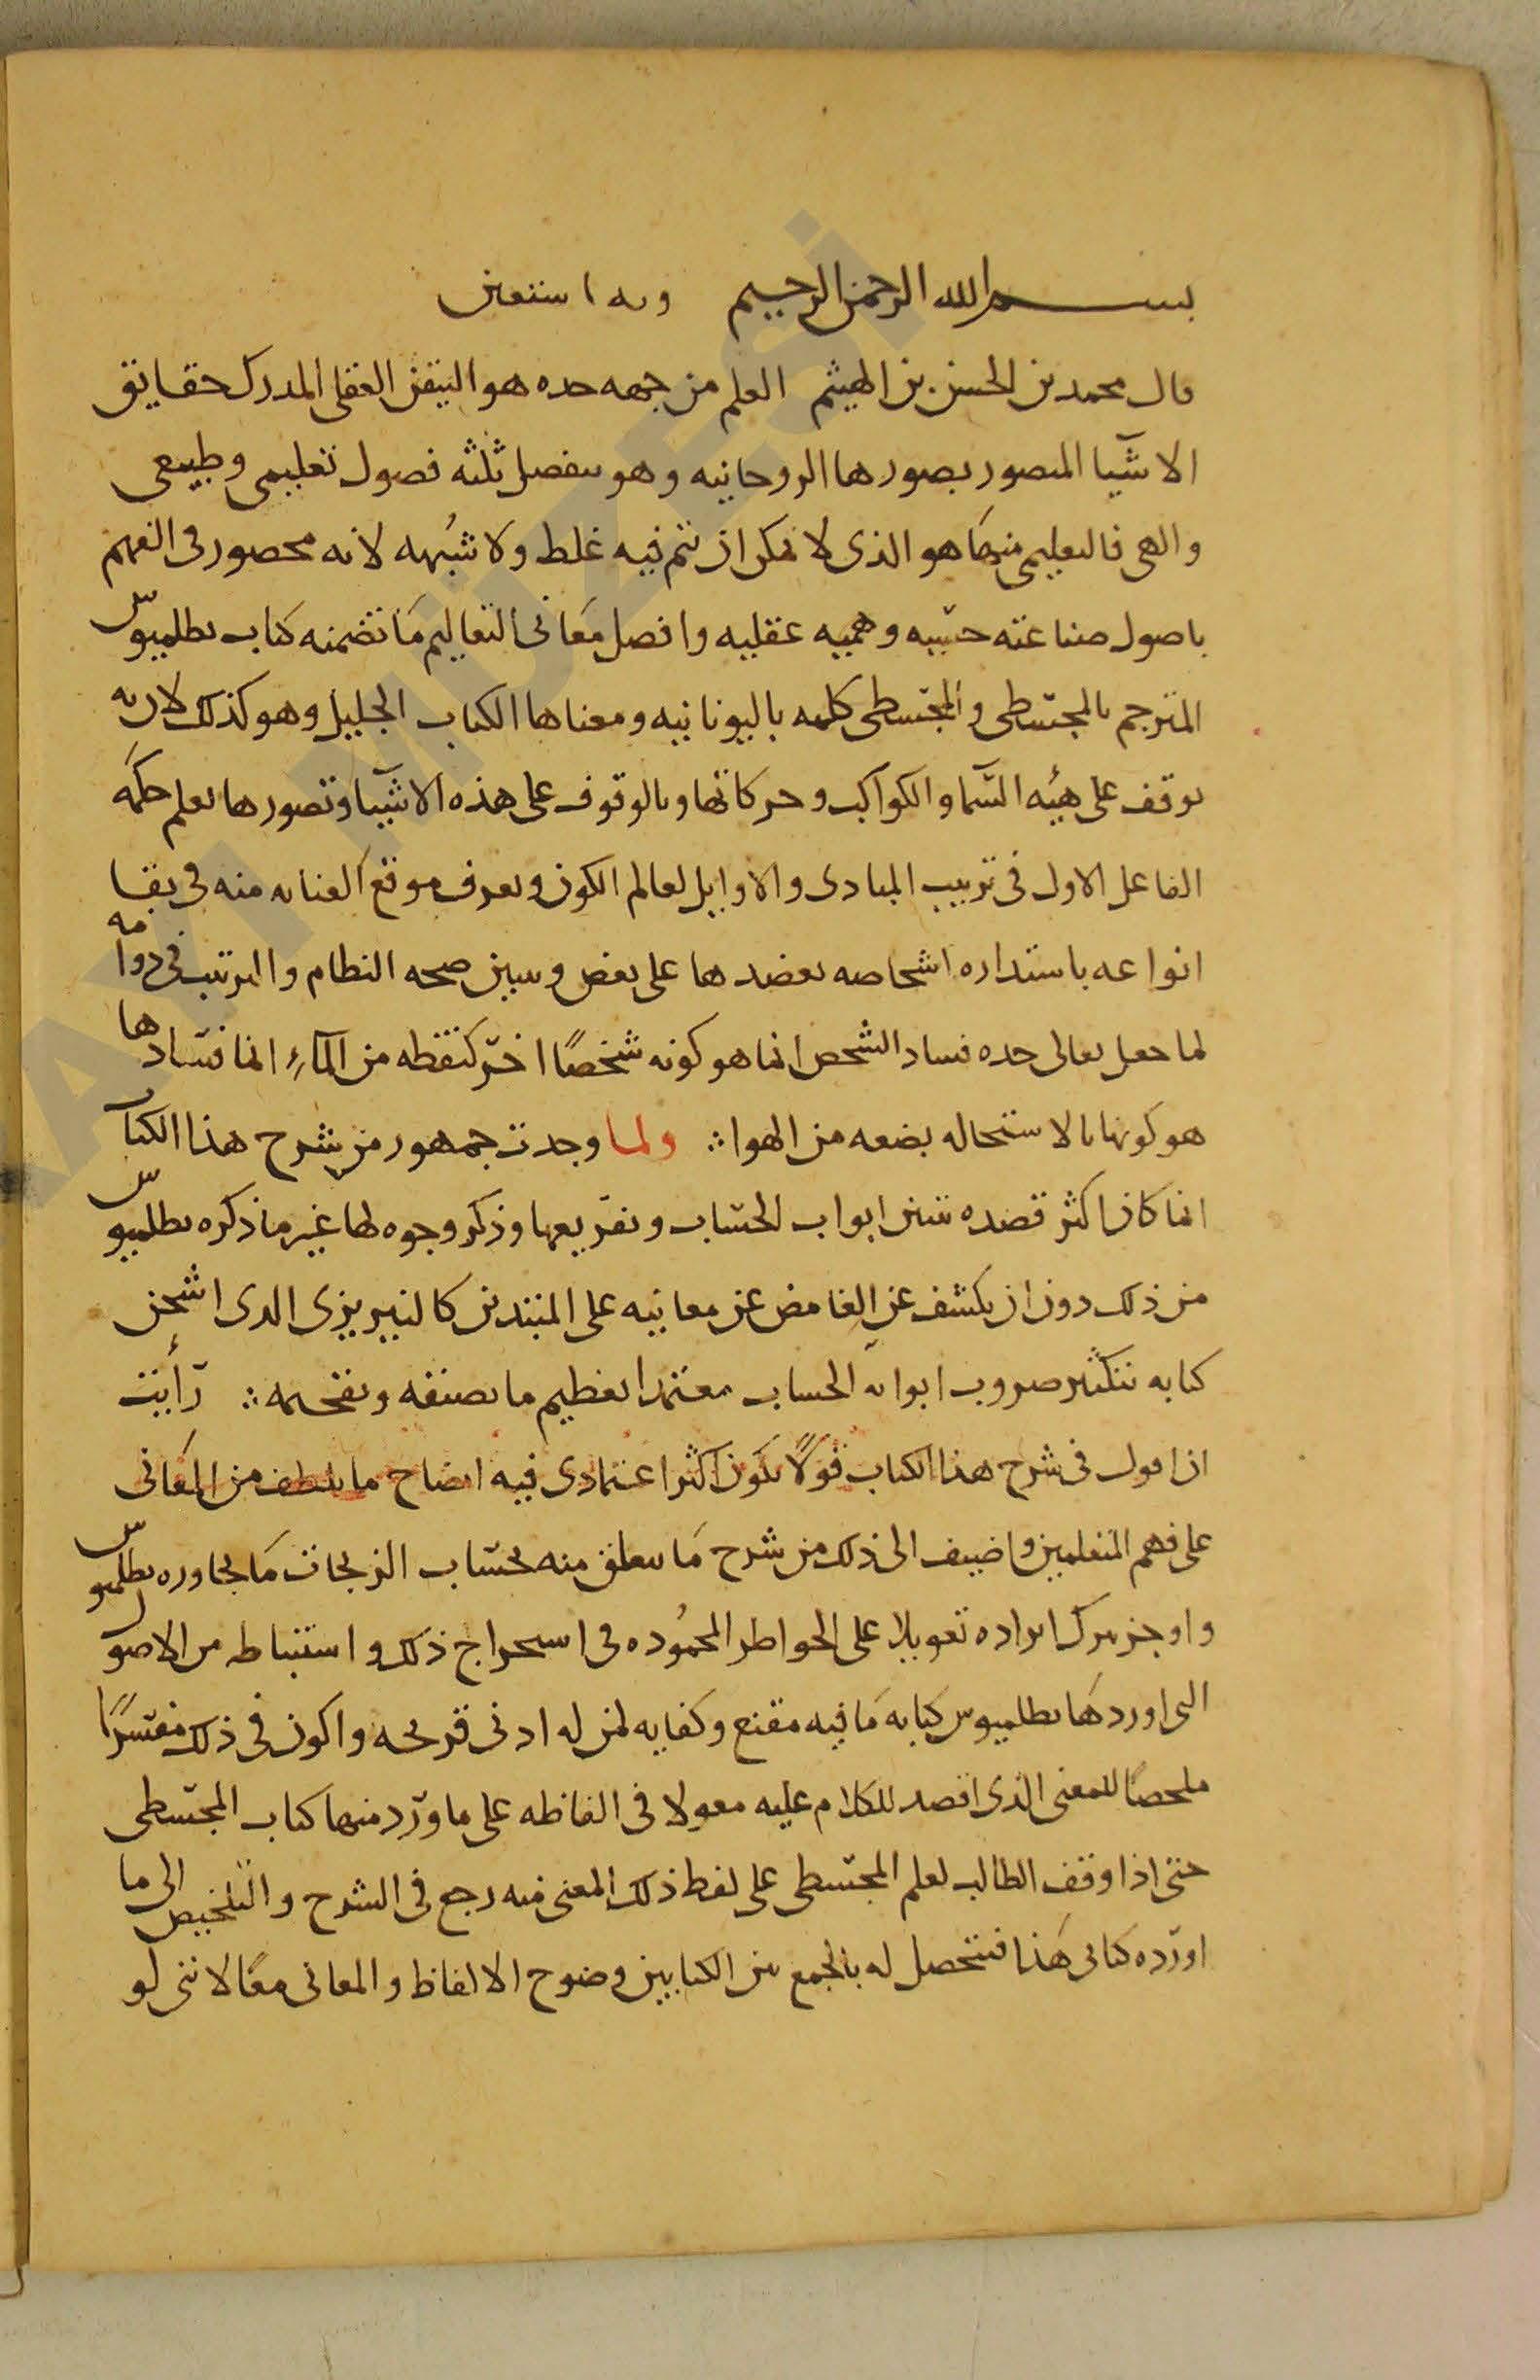 بسم الله الرحمن الرحيم وبه استعين
قال محمد بن الحسن بن الهيثم العلم من جهه حده هو اليقين العقلى المدرك حقايق
الاشيا المتصور بصورها الروحانيه وهو ينفصل ثلثه فصول تعليمى وطبيعى
والهى فالتعليمى منها هو الذى لا يمكن ان يتم فيه غلط ولا شبهه لانه محصور فى الفهم
باصول صناعته حسيه وهميه عقليه وافضل معانى التعاليم ما تضمنه كتاب بطلميوس
المترجم بالمجسطى والمجسطى كلمه باليونانيه ومعناها الكتاب الجليل وهو كذلك لانه
يوقف على هيئه السما والكواكب وحركاتها وبالوقوف على هذه الاشيا وتصورها يعلم حكمه
الفاعل الاول فى ترتيب المبادى والاوايل لعالم الكون ويعرف موقع العنايه منه فى بقا
انواعه باستداره اشخاصه بعضها على بعض ويبين صحه النظام والترتيب فى دوامه
لما جعل تعالى حده فساد الشخص انما هو كونه شخصًا اخر كنقطه من المآء انما فسادها
هو كونها بالاستحاله بضعه من الهوا ولما وجدت جمهور من شرح هذا الكتاب
انما كان اكثر قصده تبيين ابواب الحساب وتفريعها وذكر وجوه لها غير ما ذكره بطلميوس
من ذلك دون ان يكشف عن الغامض عن معانيه على المبتدئين كالنيريزى الذى اشحن
كتابه بتكثير ضروب ابوابه الحساب معتمدا تعظيم ما يصنفه وتفخيمه رأيت
ان اقول فى شرح هذا الكتاب قولًا يكون اكثر اعتمادى فيه ايضاح ما يلطف من المعانى
على فهم المتعلمين واضيف الى ذلك من شرح ما يتعلق منه بحساب الزيجات ما يجاوره بطلميوس
واوجز بترك ايراده تعويلا على الخواطر المحموده فى استخراج ذلك واستنباطه من الاصول
التى اوردها بطلميوس كتابه ما فيه مقنع وكفايه لمن له ادنى قريحه واكون فى ذلك مفسرًا
ملخصًا للمعنى الذى اقصد للكلام عليه معولا فى الفاظه على ما ورد منها كتاب المجسطى
حتى اذا وقف الطالب لعلم المجسطى على لفظ ذلك المعنى فيه رجع فى الشرح والتلخيص الى ما
اورده كتابى هذا فيتحصل له بالجمع بين الكتابين وضوح الالفاظ والمعانى معًا لاننى لو